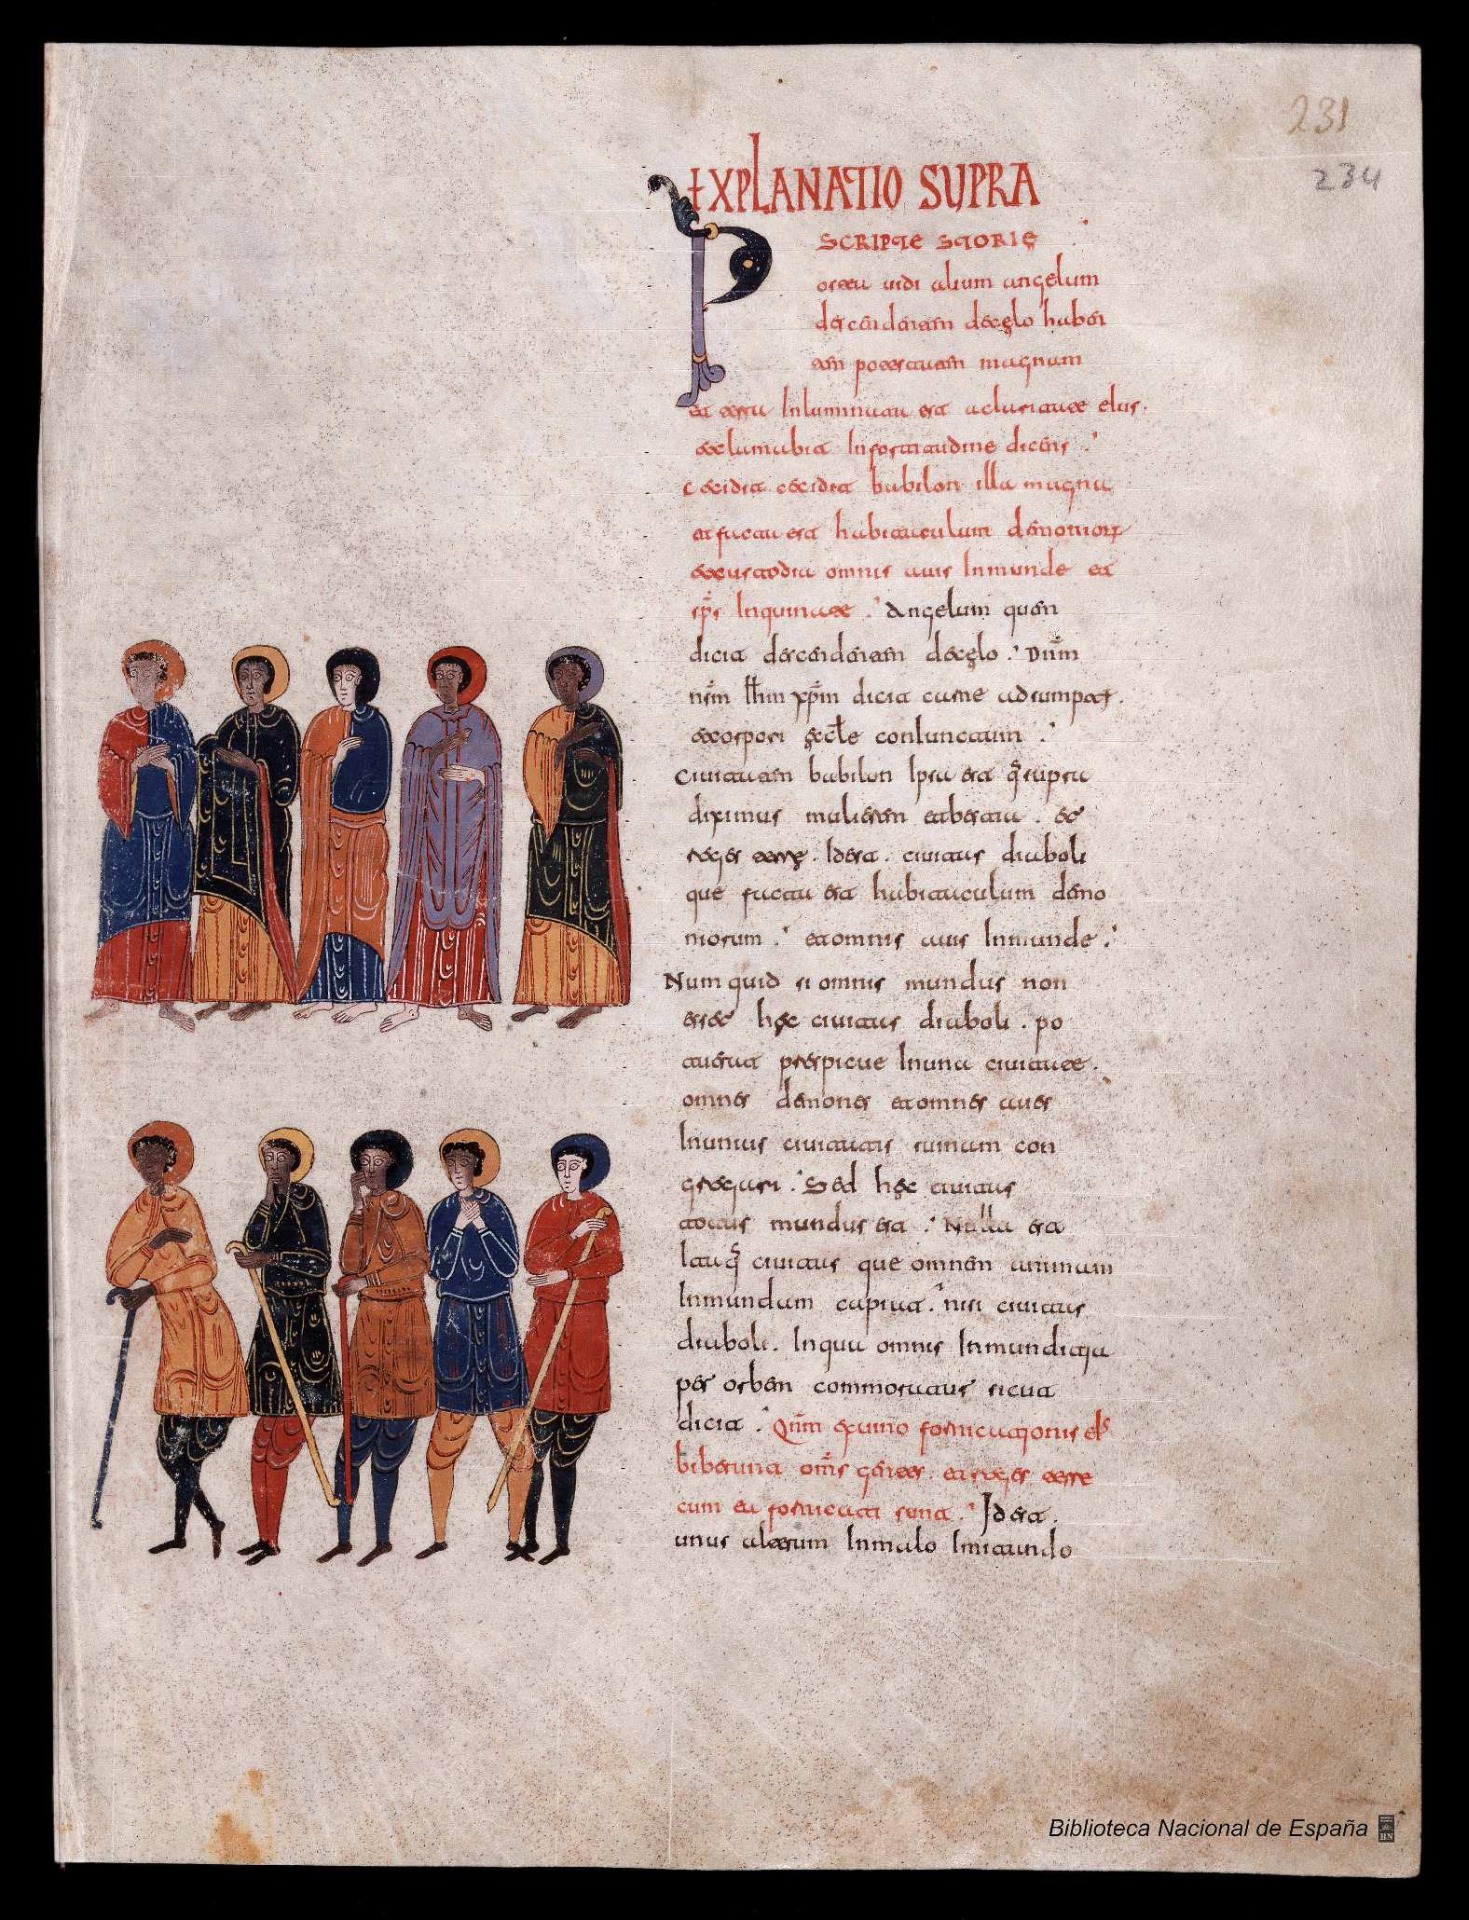 231
234
EXPLANATIO SUPRA
SCRIPTE STORIĘ
Postea uidi alium angelum
descendentem de cęlo haben
tem potestatem magnam
et terra inluminata est a claritate eius.
exclamabit in fortitudine dicens
Cecidit cecidit babilon illa magna
et facta est habitaculum demoniorꝝ
et custodia omnis auis inmunde et
sp̄s inquinate. Angelum quem
dicit descendentem de cęlo. Dn̄m
ns̄m ih̄m xp̄m dicit carne adsumpta.
et corpori ęcl̄e coniunctum.
Ciuitatem babilon ipsa est q̄ supra
diximus mulierem et bestia. et
reges terrę. Id est. ciuitas diaboli
que facta est habitaculum demo
niorum. et omnis auis inmunde.
Num quid si omnis mundus non
esset hęc ciuitas diaboli. po
tuerat perspicue in una ciuitate.
omnes demones et omnes aues
in unius ciuitatis ruinam con
gregari. Sed hęc ciuitas
totus mundus est. Nulla est
itaq̄ ciuitas que omnem animam
inmundam capiat. nisi ciuitas
diaboli. in qua omnis inmunditia
per orbem commoratur sicut
dicit. Qn̄m ex uino fornicationis eius
biberunt om̄s gentes. et reges terre
cum ea fornicati sunt. Id est.
unus alterum in malo imitando
Biblioteca Nacional de España